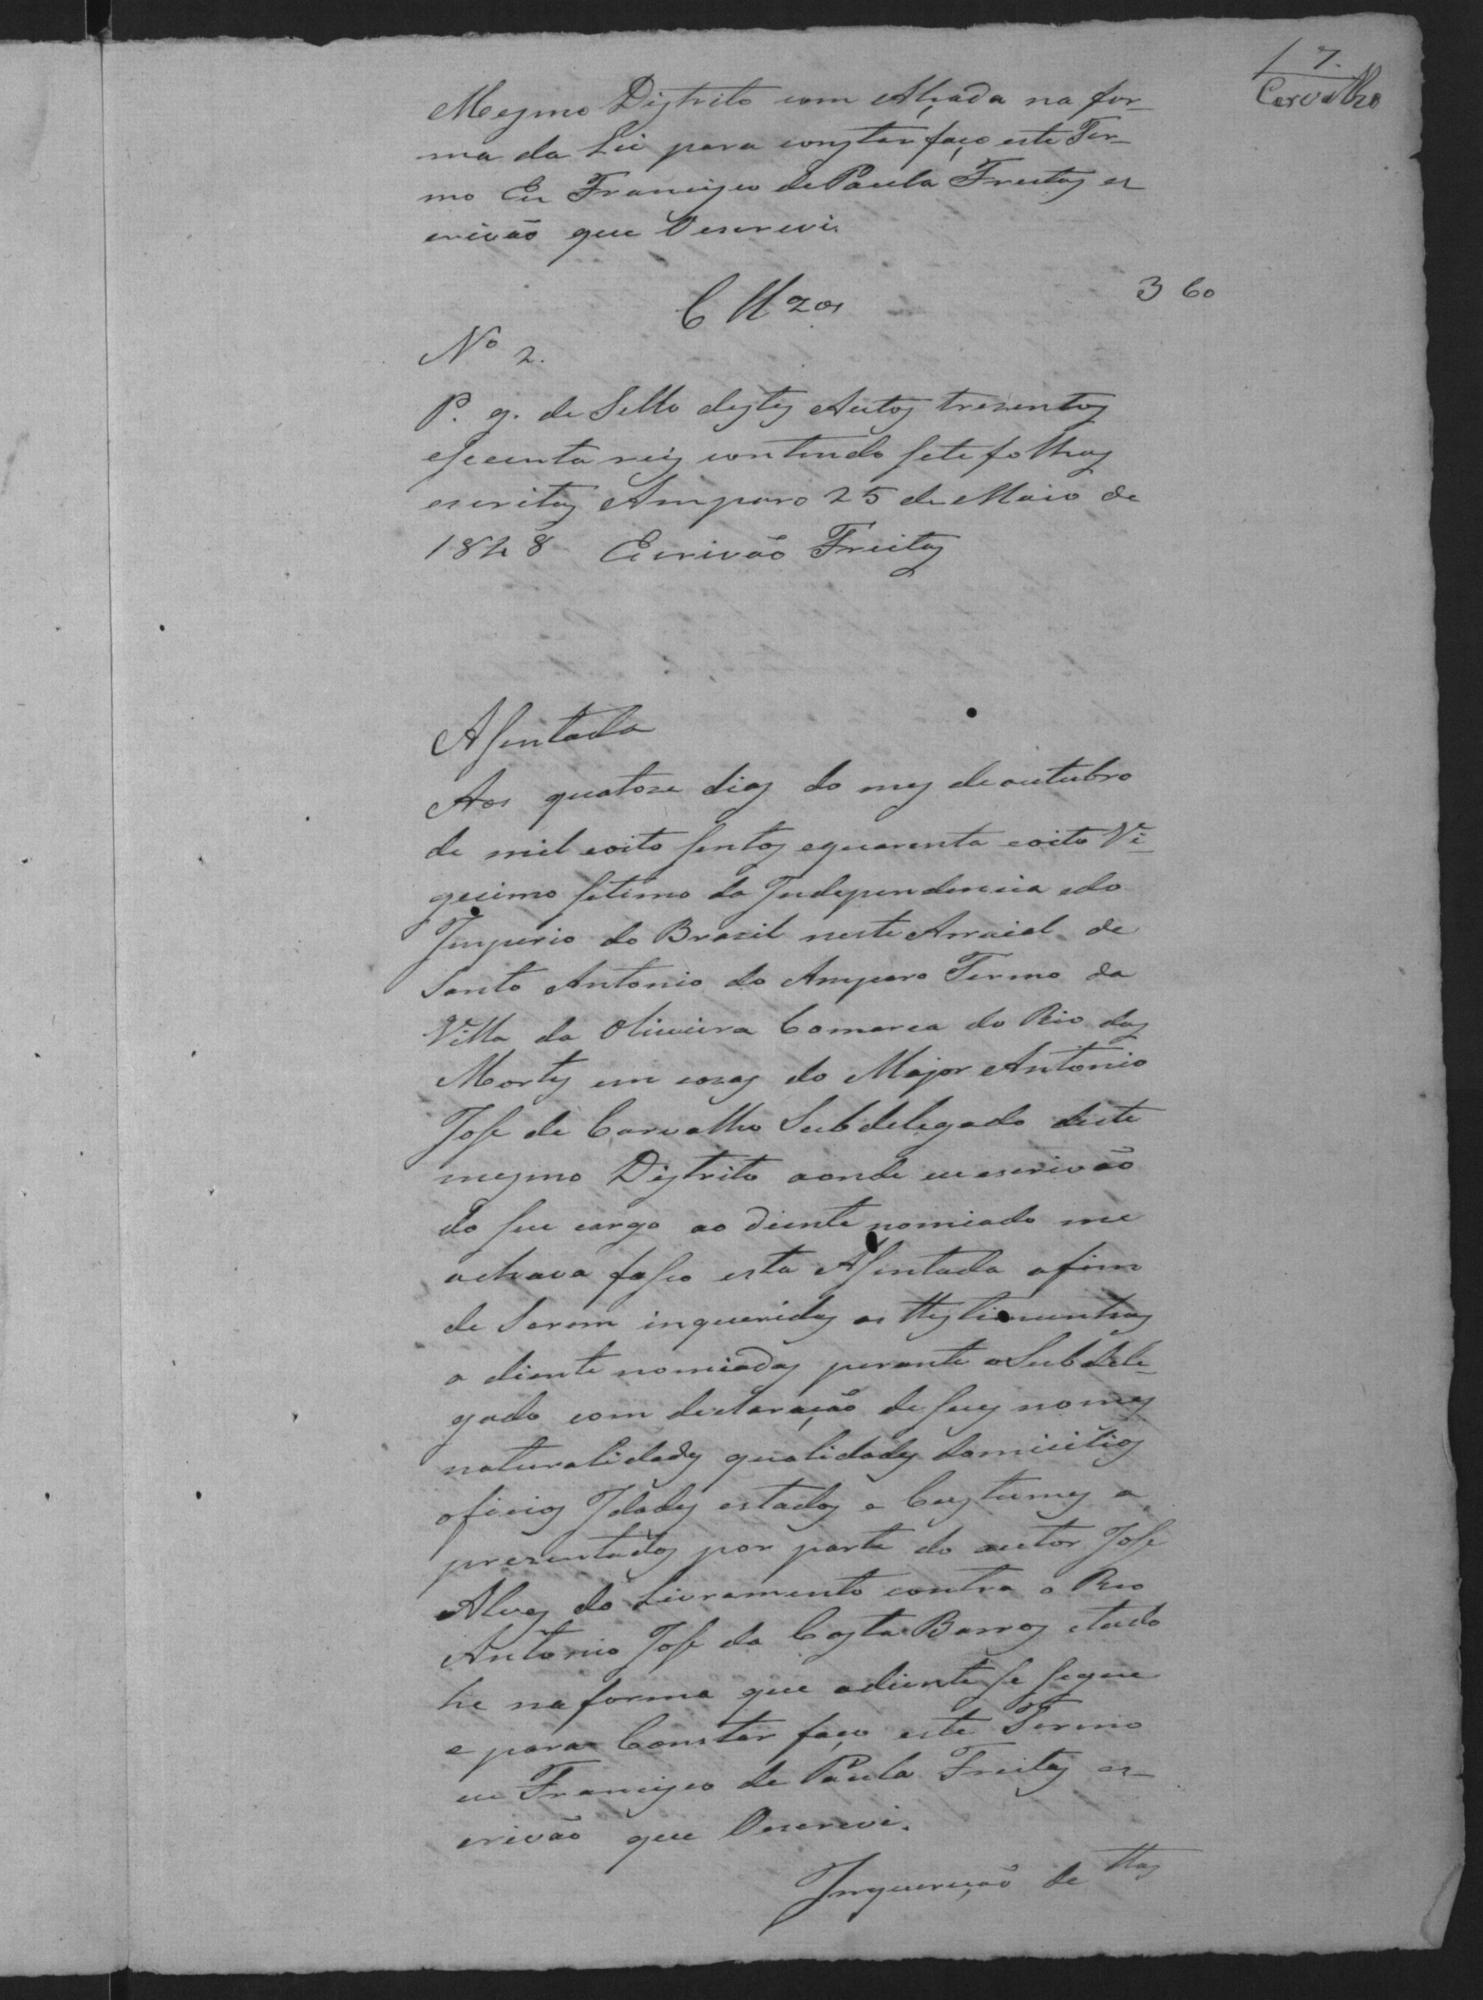 17.
Carvalho
Mesmo Distrito com Alçada na for-
ma da Lei para constar faço este Ter-
mo Eu Francisco de Paula Freitas es
crivão que Oescrevi.
360
No 2.
P. g. de Sello destes Autos tresentos
esecenta reis contendo sete folhas
escritas Amparo 25 de Maio de
1848 Escrivão Freitas
Asentada
Aos quatose dias do mes de outubro
de mil eoito sentos equarenta eoito Vi-
gecimo setimo da Independencia edo
Imperio do Brazil neste Arraial de
Santo Antonio do Amparo Termo da
Villa da Oliveira Comarca do Rio das
Mortes em cazas do Major Antonio
Jose de Carvalho Subdelegado deste
mesmo Distrito aonde eu escrivão
do seu cargo ao diente nomiado me
achava fasso esta Asentada afim
de Serem inqueridas as testimunhas
a diente nomiadas perante o Subdele-
gado com declaração de seus nomes
naturalidades qualidades domicilios
oficios Idades estados e Custumes a
prezentados por parte do autor Jose
Alves do Livramento contra o Reo
Antonio Jose da Costa Barros etudo
he na forma que adiente se segue
e para Constar faço este Termo
eu Francisco de Paula Freitas es-
crivão que Oescrevi.
Inquerição de ttas